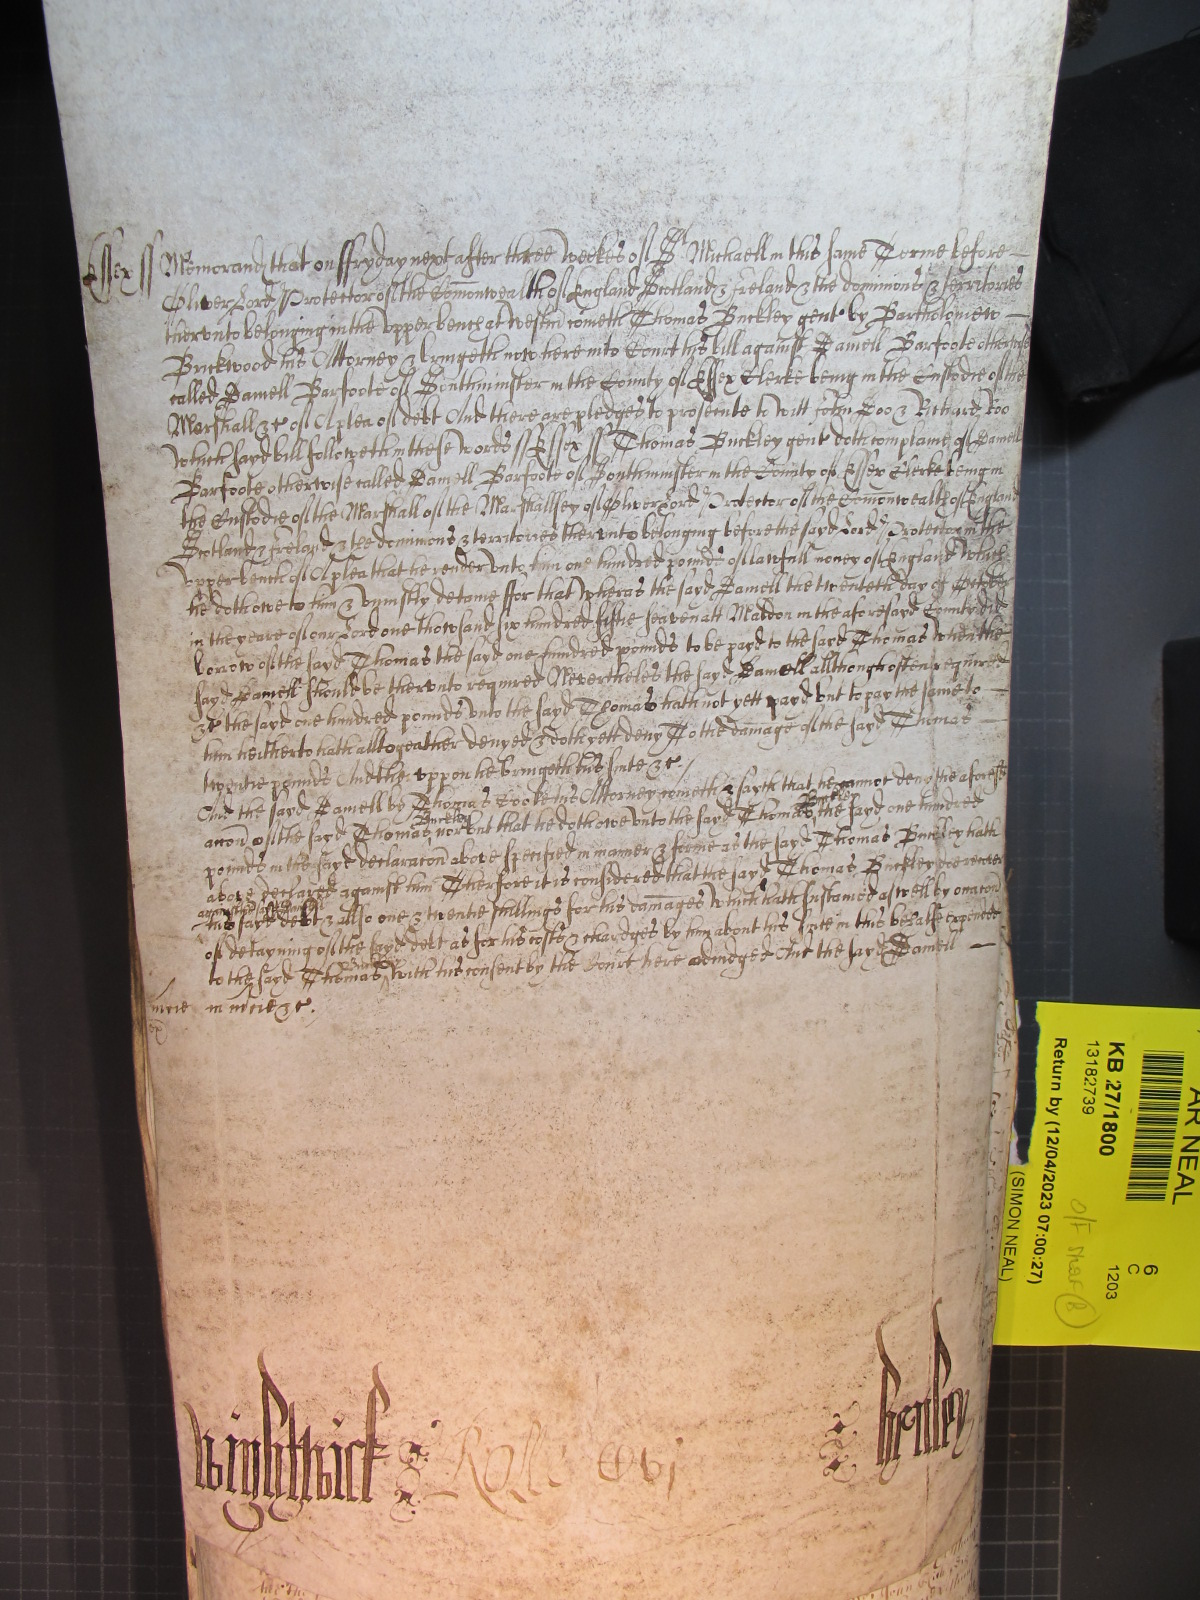 Essex ss Memorand that on ffryday next after three weekes of St Michaell in this same Terme before
Oliver Lord Protector of the Comonwealth of England Scotland & Ireland & the dominions & territories
therunto belonging in the upper bench at Westm cometh Thomas Buckley gent by Bartholomew
Brickwood his Attorney & bringeth now here into Court his bill against Daniell Barfoote otherwise
called Daniell Barfoote of Southminster in the County of Essex Clerke being in the Custodie of the
Marshall &c of A plea of debt And there are pledges to prosecute to witt John Doo & Richard Roo
Which sayd bill followeth in these words ss Essex ss Thomas Buckley gent doth complaine of Daniell
Barfoote otherwise called Daniell Barfoote of Southminster in the County of Essex Clerke being in
the Custodie of the Marshall of the Marshallsey of Oliver Lord Protector of the Comonwealth of England
Scotland & Ireland & the dominions & territories therunto belonging before the sayd Lord Protector in the
upper bench of A plea that he render unto him one hundred pounds of lawfull money of England which
he doth owe to him & uniustly detaine ffor that Wheras the sayd Daniell the twenteth day of October
in the yeare of our Lord one thowsand six hundred fiftie seaven att Maldon in the aforesayd County did
borrow of the sayd Thomas the sayd one hundred pounds to be payd to the sayd Thomas when the
sayd Daniell should be therunto required Neverthelcs the sayd Daniell allthough often required
&c the sayd one hundred pounds unto the sayd Thomas hath not yett payd but to pay the same to
him heitherto hath alltogeather denyed & doth yett deny To the damage of the sayd Thomas
twentie pounds And theruppon he bringeth this suite &c
And the sayd Daniell by Thomas Cooke his Attorney cometh & sayth that he cannot deny the aforesd
accon of the sayd Thomas Buckley nor but that he doth owe unto the sayd Thomas Buckley the sayd one hundred
pounds in the sayd declaracon above specified in manner & forme as the sayd Thomas Buckley hath
above declared against him Therfore it is considered that the sayd Thomas Buckley doe recover
against the sayd Daniell his sayd debt & allso one & twentie shillings for his damages Which hath sustained aswell by occacon
of detayning of the sayd debt as for his costs & chardges by him about his suite in this behalfe expended
to the sayd Thomas Buckley with his consent by the Court here adiudged And the sayd Daniell
mcie in mcie &c
Wightwick & Roll Cvi & henley
AR NEAL
KB 27/1800
13182739
Return by (12/04/2023 07:00:27)
(SIMON NEAL)
6
C
1203